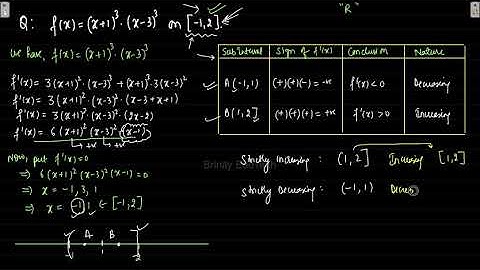 "R"
Q: f(x) = (x+1)³ · (x-3)³ on [-1,2]
We have, f(x) = (x+1)³ · (x-3)³
f'(x) = 3(x+1)² · (x-3)³ + (x+1)³ · 3(x-3)²
f'(x) = 3(x+1)² · (x-3)² · (x-3+x+1)
f'(x) = 3(x+1)² · (x-3)² · (2x-2)
f'(x) = 6(x+1)² (x-3)² (x-1)
+ve +ve
Now, put f'(x)=0
⇒ 6(x+1)² (x-3)² (x-1) = 0
⇒ x = -1, 3, 1
⇒ x = -1, 1 ∈ [-1,2]
A B
-1 1 2
Subinterval Sign of f'(x) Conclusion Nature
A(-1,1) (+)(+)(-) = -ve f'<0 Decreasing
B(1,2] (+)(+)(+) = +ve f'>0 Increasing
Strictly increasing : (1,2] Increasing [1,2]
Strictly Decreasing : (-1,1) Decreas